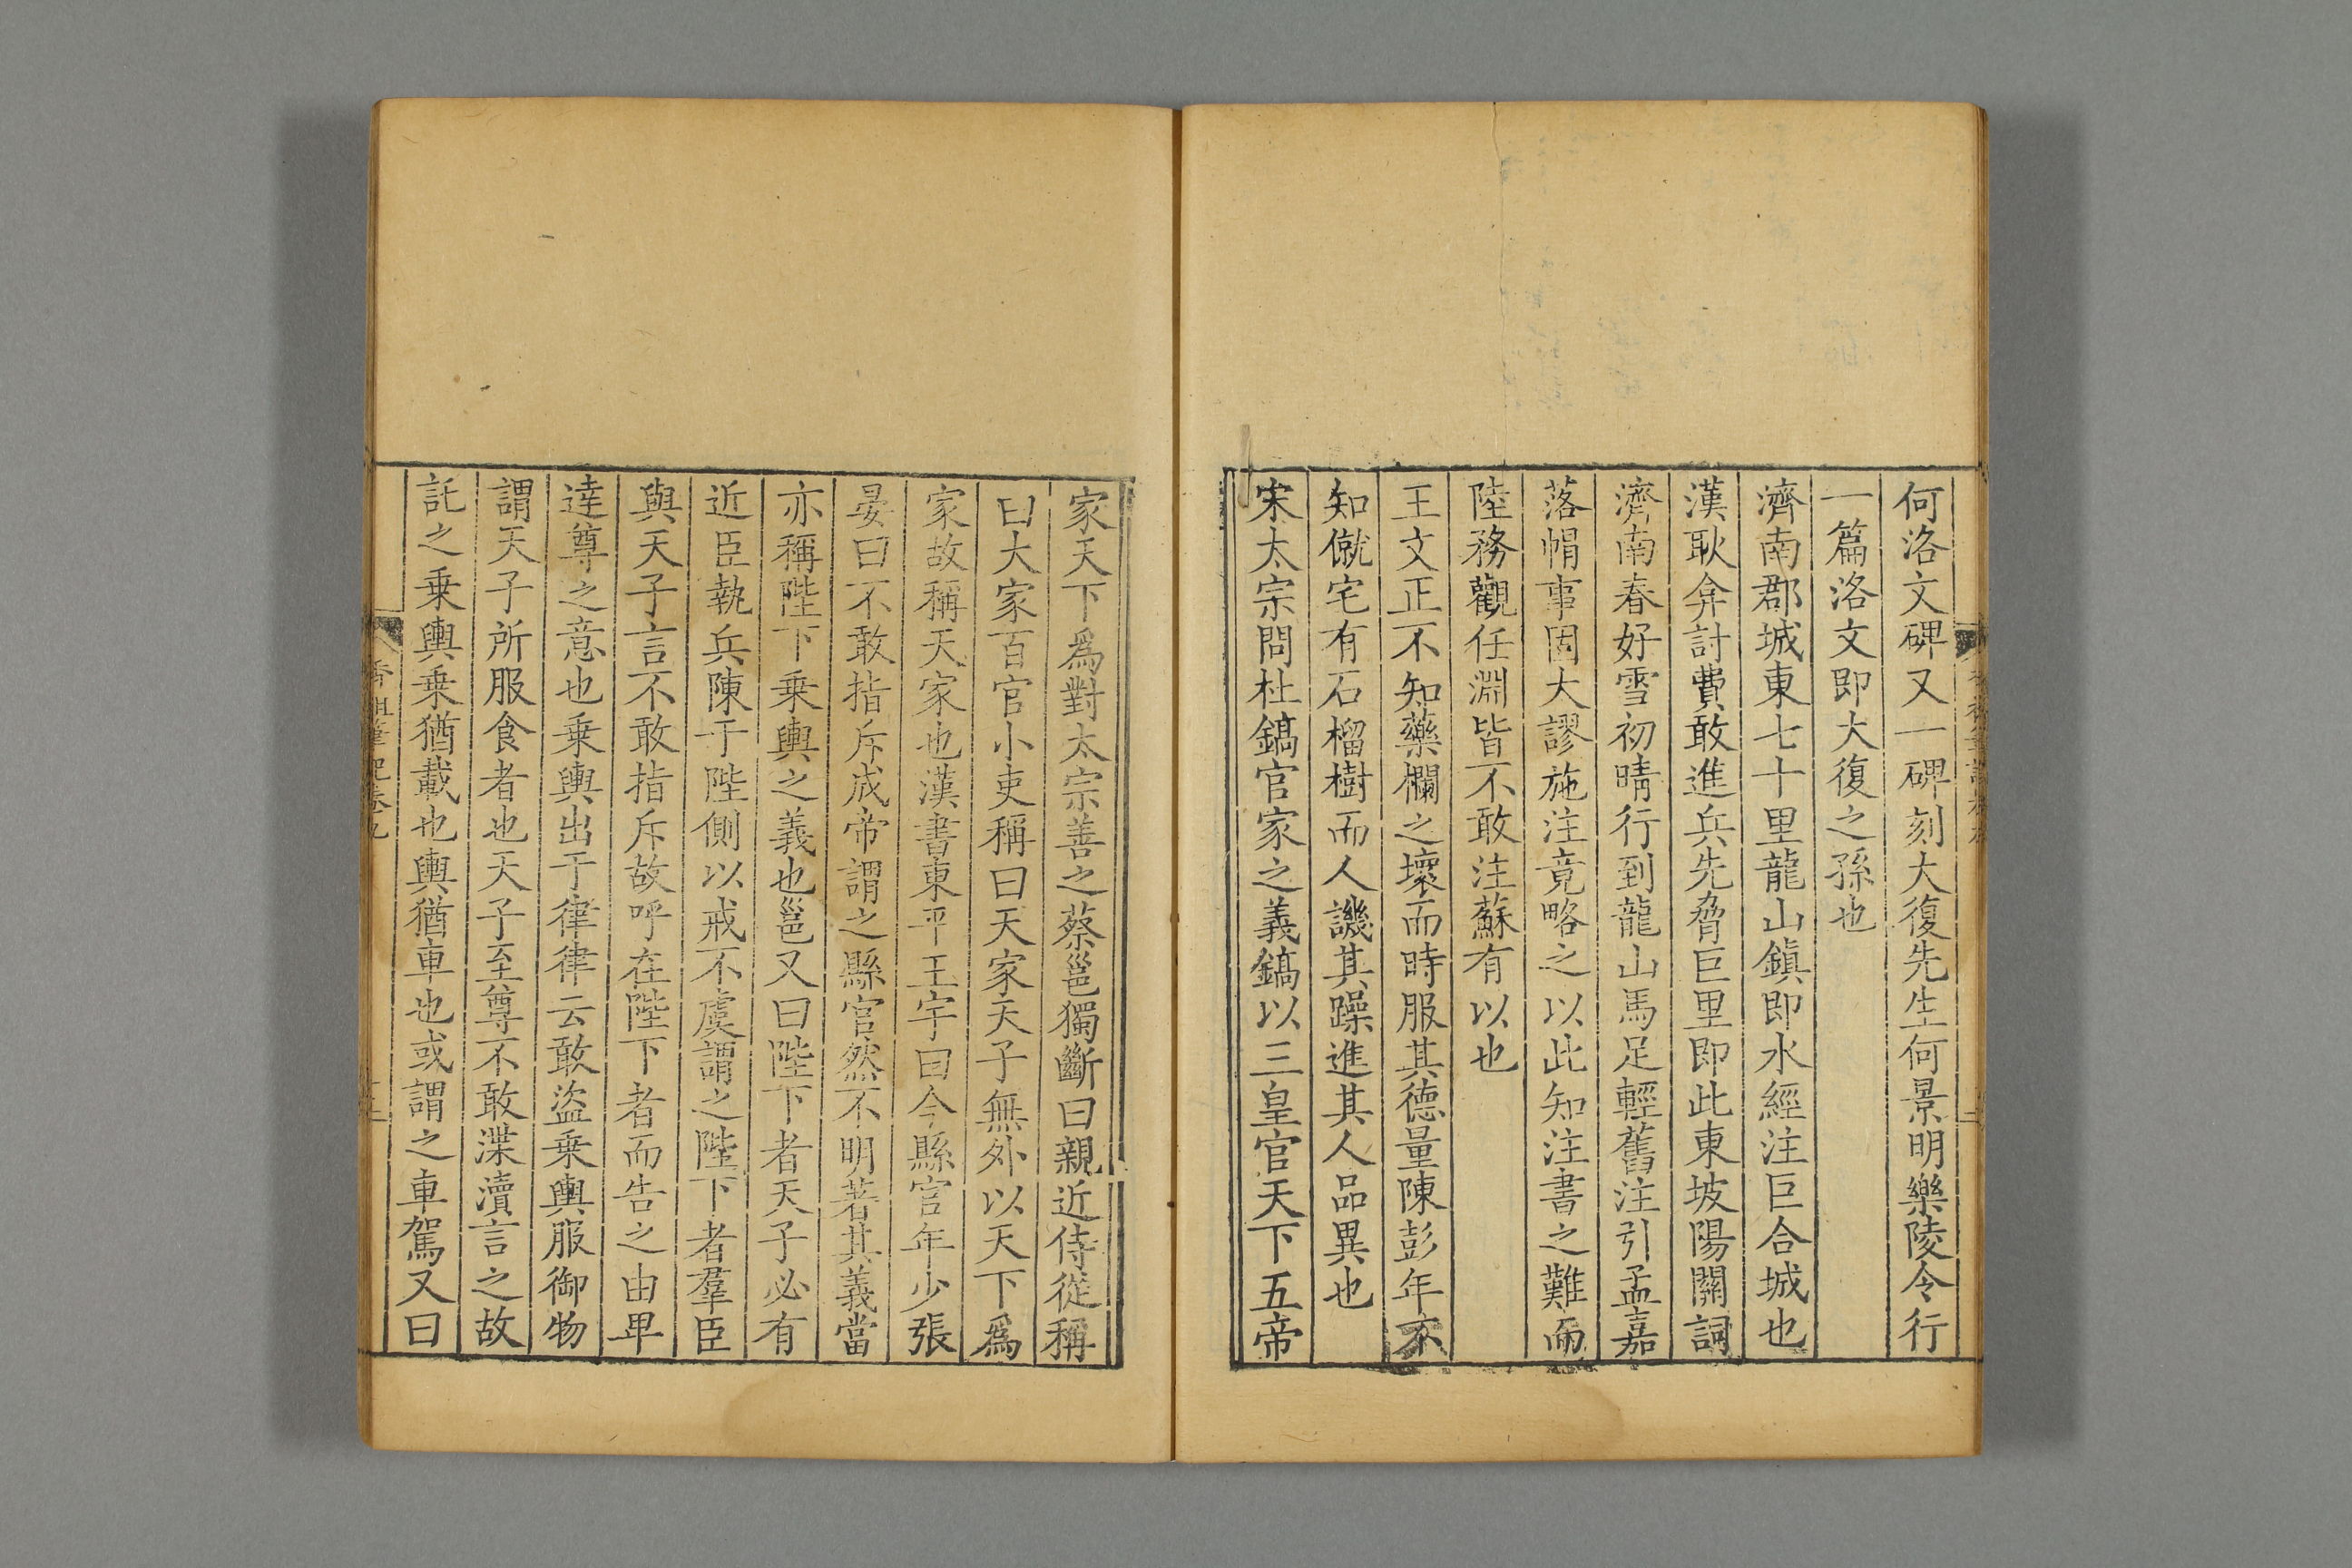 何洛文碑又一碑刻大復先生何景明樂陵令行
一篇洛文即大復之孫也
濟南郡城東七十里龍山鎮即水經注巨合城也
漢耿弇討費敢進兵先脅巨里即此東坡陽關詞
濟南春好雪初晴行到龍山馬足輕舊注引孟嘉
落帽事固大謬施注竟略之以此知注書之難而
陸務觀任淵皆不敢注蘇有以也
王文正不知藥欄之壞而時服其德量陳彭年不
知僦宅有石榴樹而人譏其躁進其人品異也
宋太宗問杜鎬官家之義鎬以三皇官天下五帝
家天下爲對太宗善之蔡邕獨斷曰親近侍從稱
曰大家百官小吏稱曰天家天子無外以天下爲
家故稱天家也漢書東平王宇曰今縣官年少張
晏曰不敢指斥成帝謂之縣官然不明著其義當
亦稱陛下乗輿之義也邕又曰陛下者天子必有
近臣執兵陳于陛側以戒不虞謂之陛下者羣臣
與天子言不敢指斥故呼在陛下者而告之由卑
達尊之意也乗輿出于律律云敢盜乗輿服御物
謂天子所服食者也天子至尊不敢渫瀆言之故
託之乗輿乗猶載也輿猶車也或謂之車駕又曰
香祖筆記卷九